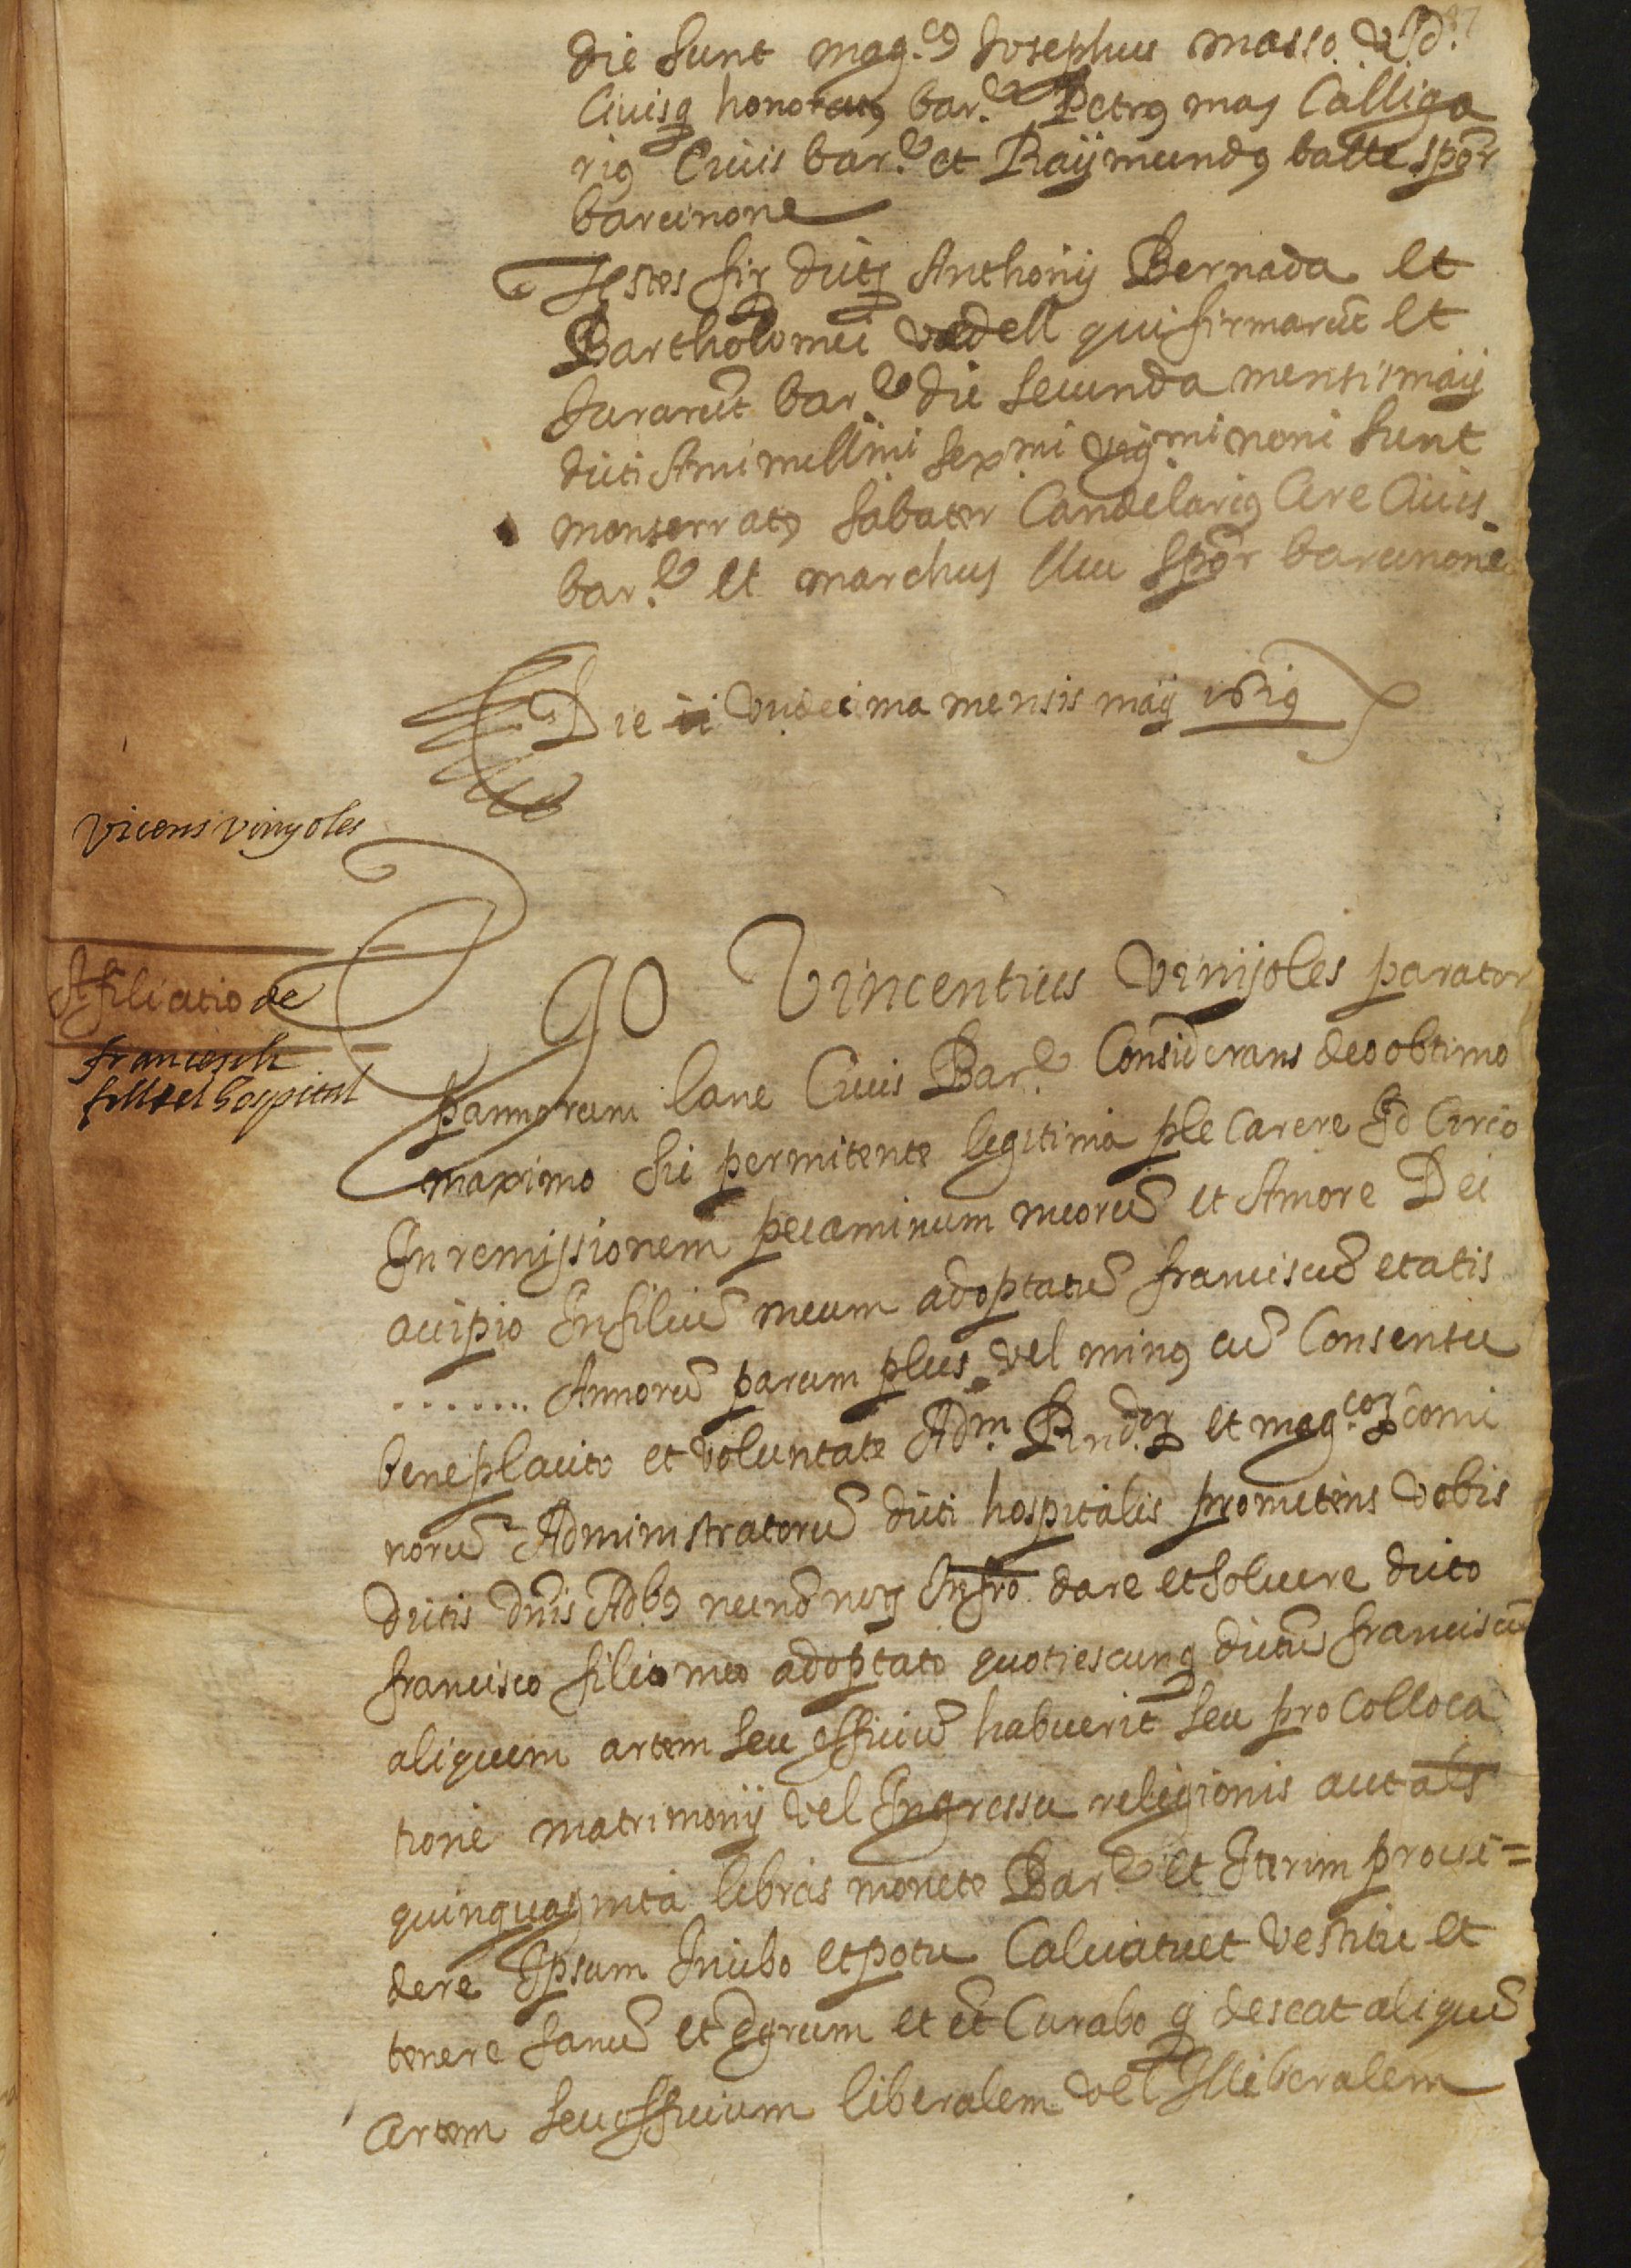 87
die sunt mag.cus Josephus masso V.J.d.
Ciuisq honoratus bar.e Petrus mas Calliga
rius Ciuis bar.e et Raÿmundus batte spor
barcinone
Testes fir dictj Anthonij Bernada et
Bartholomei vadell qui firmarut et
Jurarut bar.e die secunda mensis maij
dicti Ami millmi sexmi vigmi noni sunt
monserratus sabater Candelarius Cere Ciuis
bar.e et marchus lluc spor barcinone
Die ii Vndecima mensis maij 1629
Vicens vinyoles
Afiliatio de
francesch
fill del hospital
Ego Vincentius Vinÿoles parator
pannorum lane Ciuis Bar.e Considerans deo obtimo
maximo sic permitente legitima ple Carere Id Circo
In remissionem pecaminum meoru et Amore Dei
accipio In filiu meum adoptatu franciscu etatis
........ Annoru parum plus vel minus cu Consensu
beneplacito et voluntate Adm. Rndor et mag.cor domi
noru Administratoru dicti hospitalis prometens vobis
dictis dnis Adbus necno notj Infro dare et soluere dicto
francisco filio meo adoptato quotiescunq dictu franciscu
aliquem artem seu officiu habuerit seu pro Colloca
tione matrimonij vel Ingressu religionis aut als
quinquaginta libras monete Bar.e et Iterim proui=
dere Ipsum In cibo et potu Calciatu et vestitu et
tenere sanu et egrum et et Curabo q descat aliqu
Artem seu officium liberalem vel Illiberalem